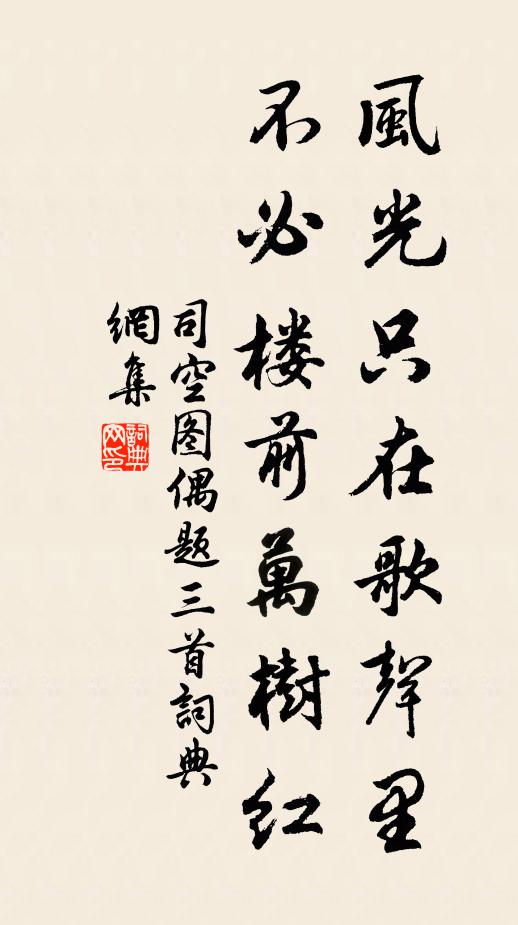 風光只在歌聲里
不必楼前萬樹红
司空图偶题三首詞典
網集
詞典
网印